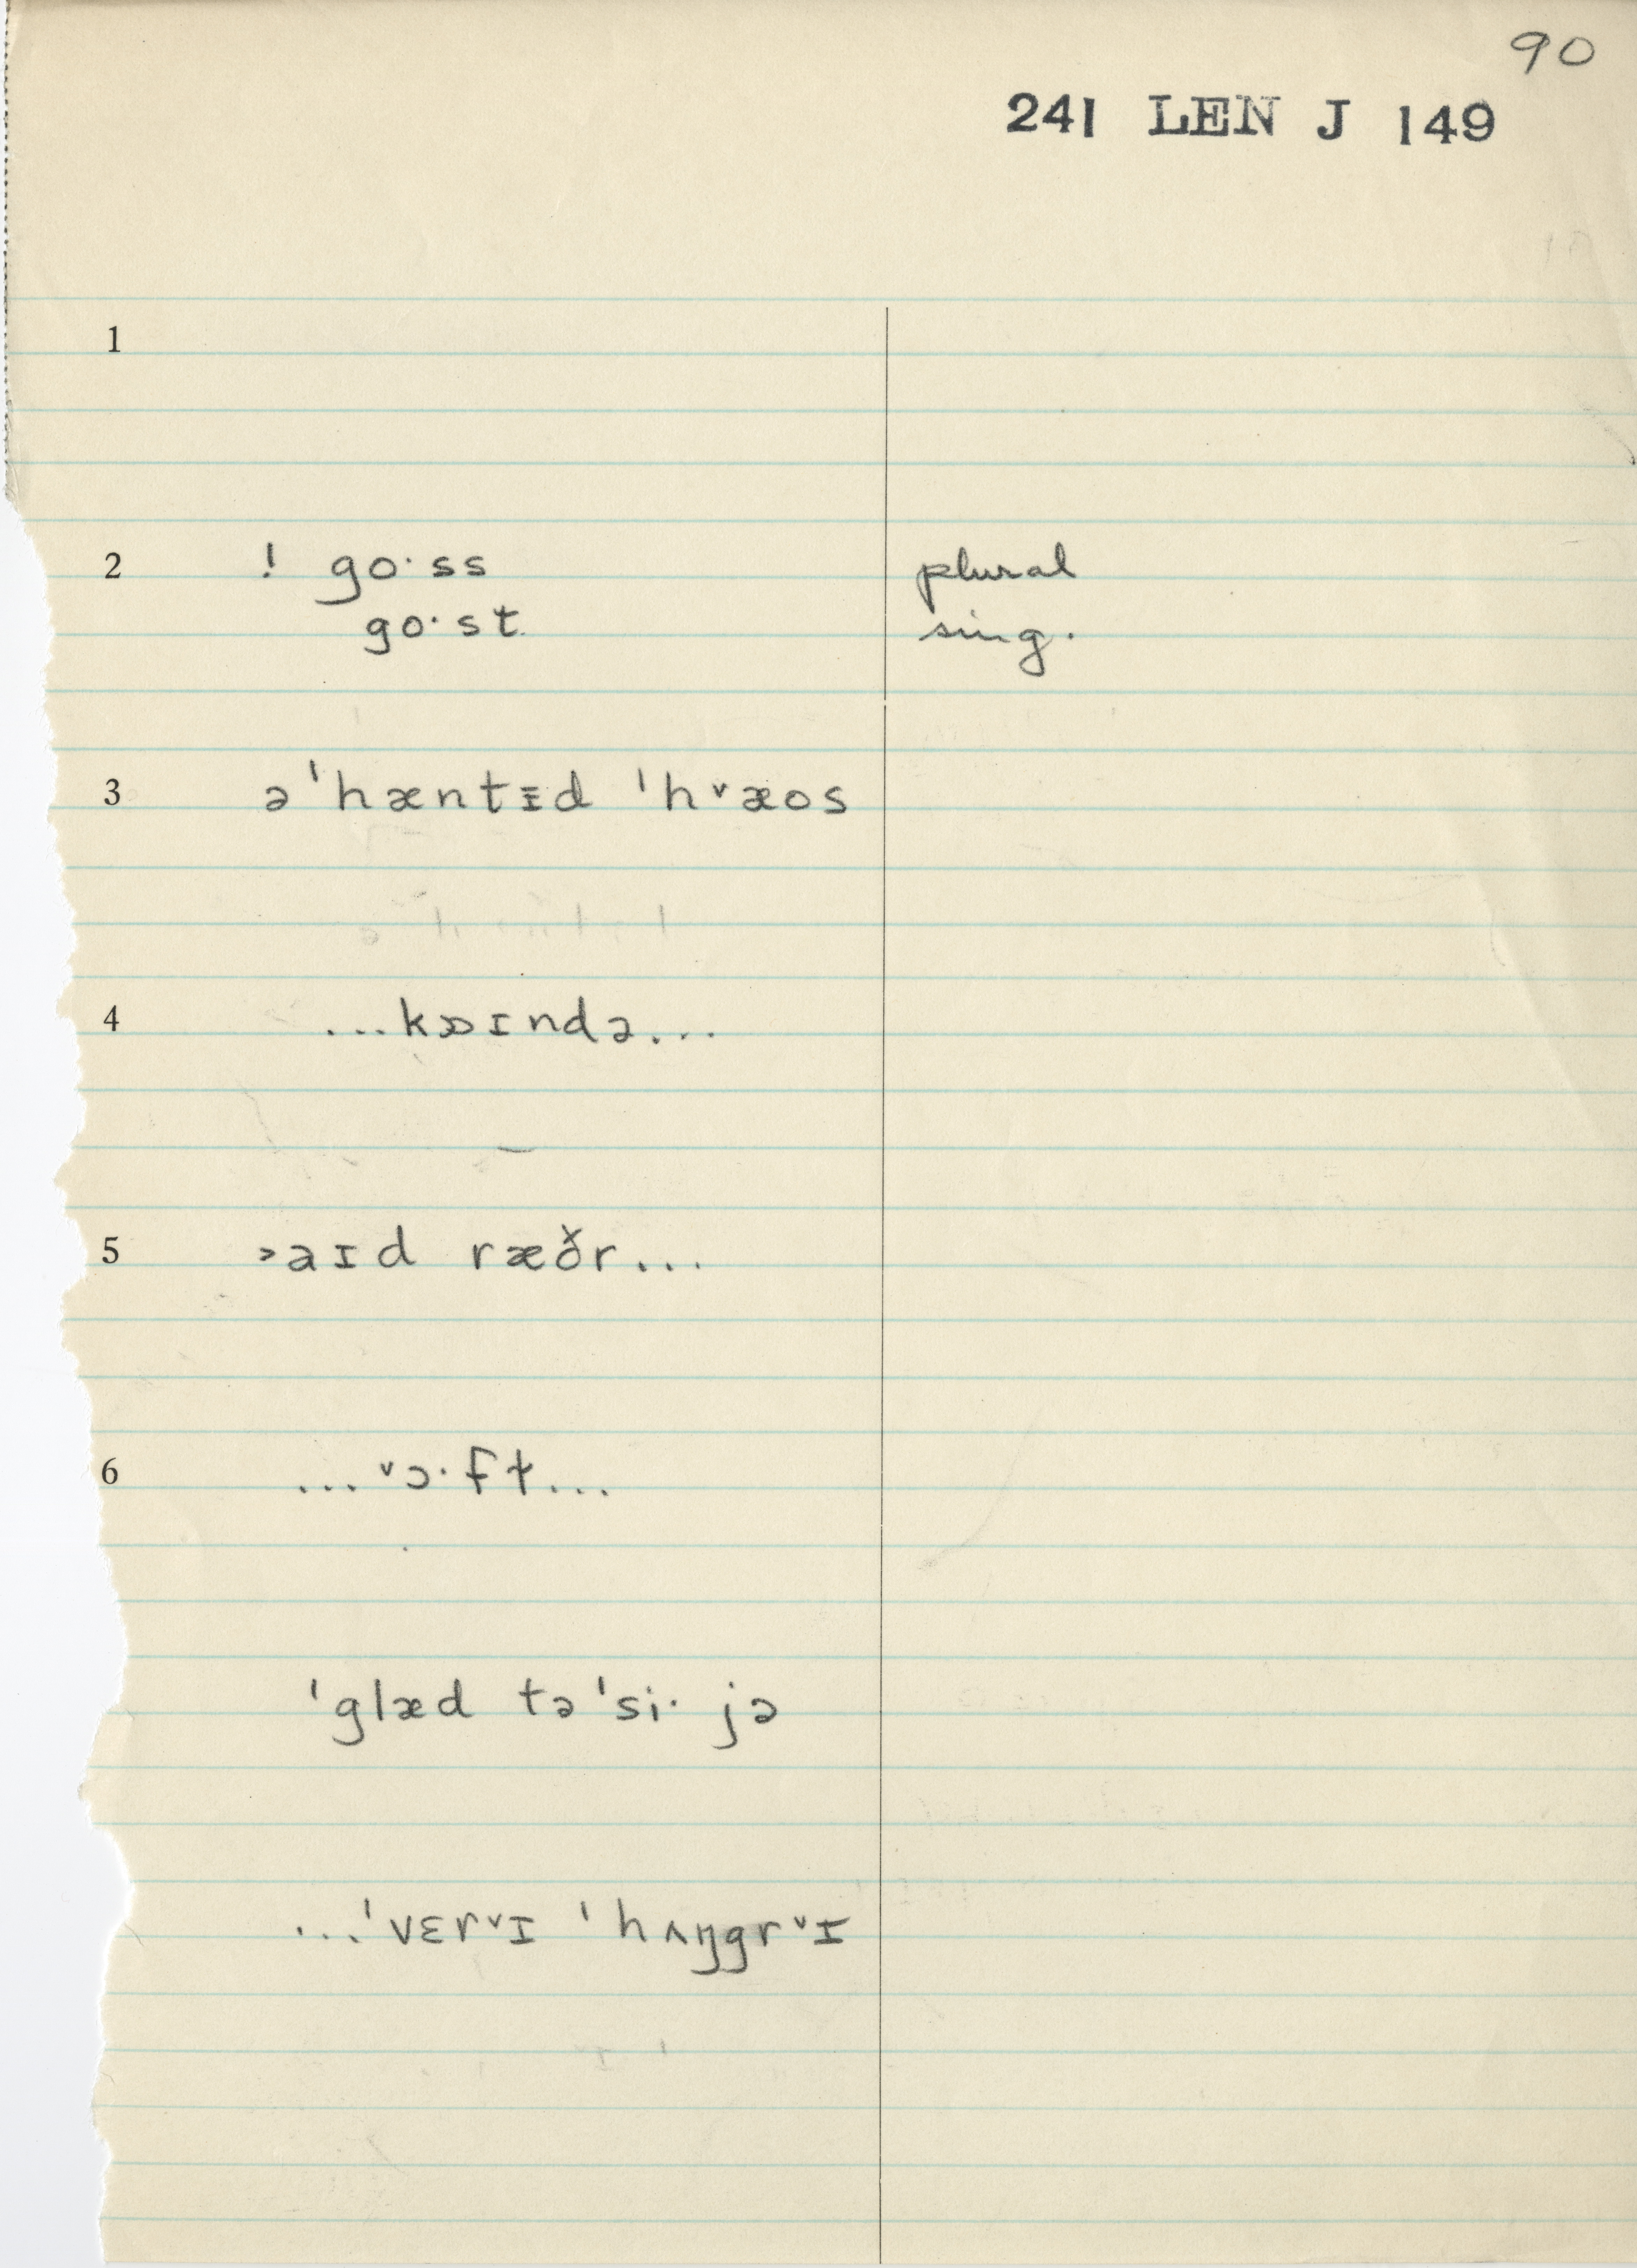 90
241 LEN J 149
1
2 ! go·ss plural
go·st sing.
3 ə ˈhæntɪd ˈh˅æos
4 ...kɒɪndə...
5 ˃aɪd ræðr...
6 ...˅ɔ·ft...
ˈglæd tə ˈsi· jə
...ˈvɛr˅ɪ ˈhʌŋgr˅ɪ